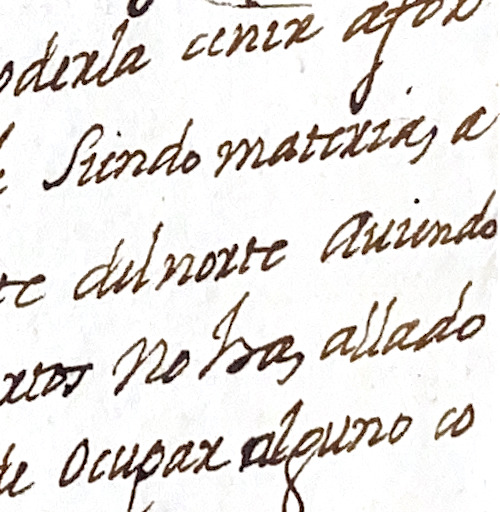 oderla cenir afor
Siendo materia, a
te del norte auiendo
xtos No ha, allado
de Ocupar alguno co